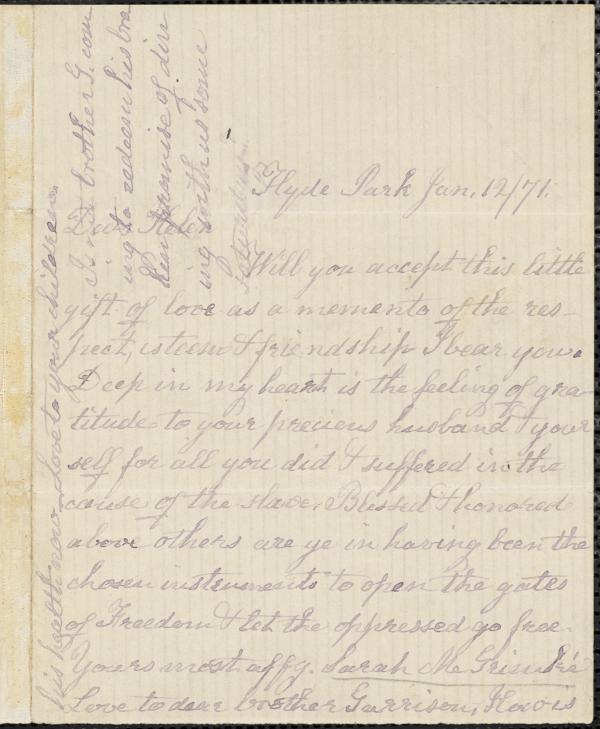 Hyde Park Jan, 12/71.
Dear Helen
Will you accept this little
gift of love as a memento of the res-
pect, isteem & friendship I bear you.
Deep in my heart is the feeling of gra-
titude to your precious husband & your
self for all you did & suffered in the
cause of the slave. Blessed & honored
above others are ye in having been the
chosen instruments to open the gates
of Freedom & let the oppressed go free.
Yours most affy. Sarah M Grimké
Love to dear brother Garrison, How is
his health now Love to your children.
Is not brother G. com
ing to redeem his bro
ken promise of din
ing with us some
Saturday